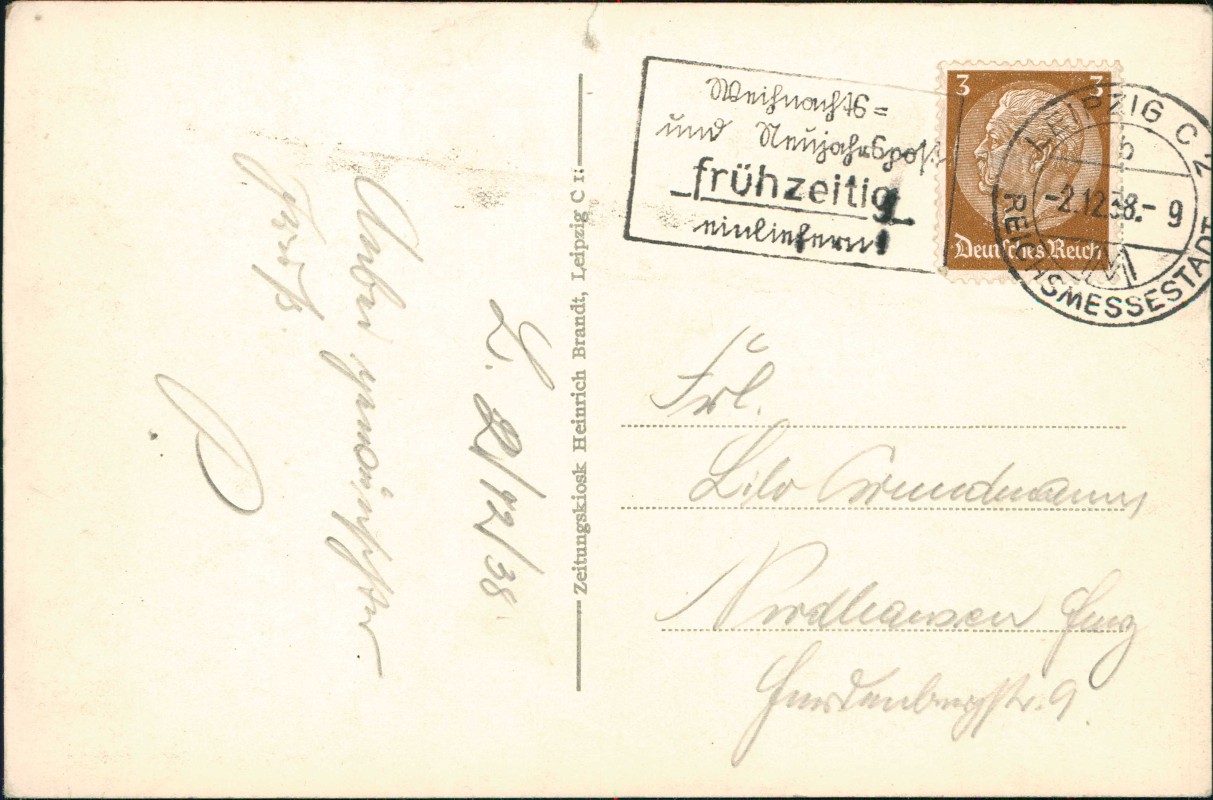 L. 2/12/38
Unbe
Gruß
P.
Zeitungskiosk Heinrich Brandt, Leipzig C 1:
Weihnachts=
und Neujahrspost
frühzeitig
einliefern!
3 3
Deutsches Reich
LEIPZIG C 2
b
-2.12.38.- 9
REICHSMESSESTADT
Frl.
Lilo Grundmann
Nordhausen Harz